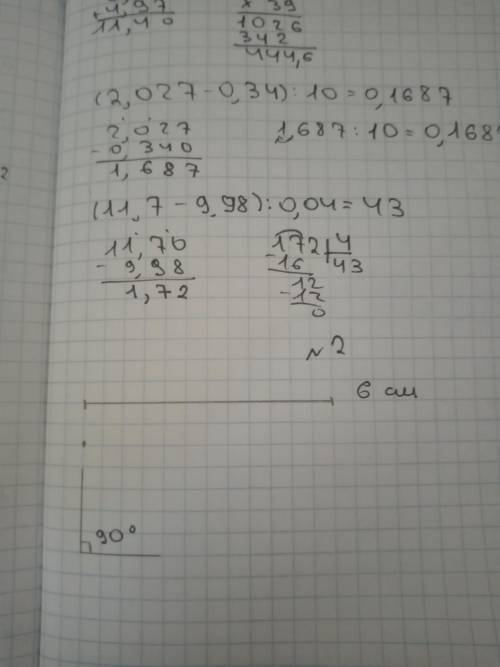 4,97 × 39
11,40 1026
342
444,6
(2,027 - 0,34) : 10 = 0,1687
2,027 1,687 : 10 = 0,168
- 0,340
1,687
(11,7 - 9,98) : 0,04 = 43
11,70 172 4
- 9,98 - 16 43
1,72 12
- 12
0
№ 2
6 см
90°